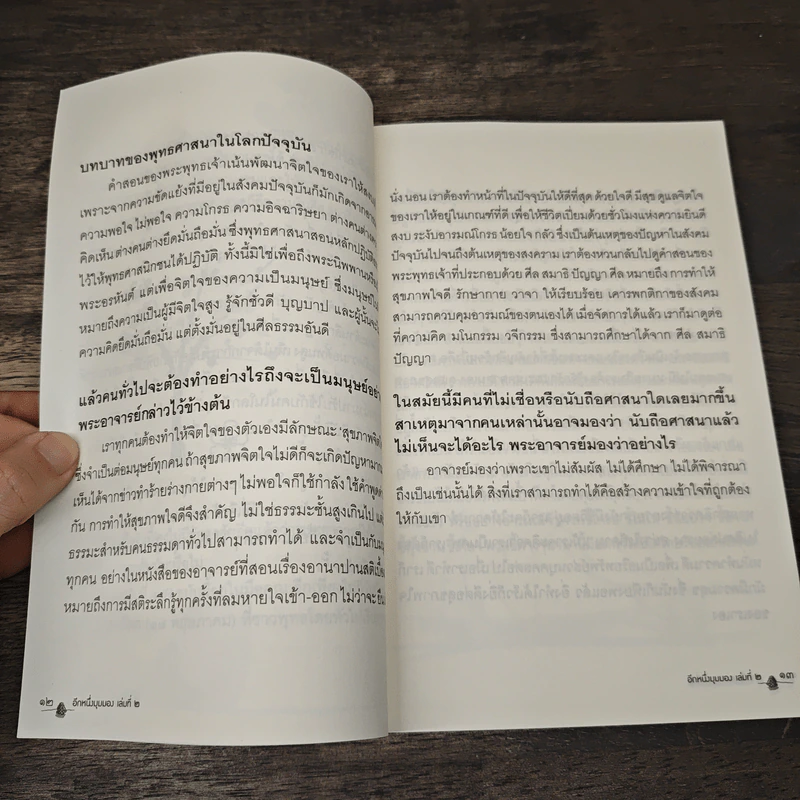 บทบาทของพุทธศาสนาในโลกปัจจุบัน
คำสอนของพระพุทธเจ้าเน้นพัฒนาจิตใจของเราให้
เพราะจากความขัดแย้งที่มีอยู่ในสังคมปัจจุบันก็มักเกิดจาก
ความพอใจ ไม่พอใจ ความโกรธ ความอิจฉาริษยา ต่างคนต่าง
คิดเห็น ต่างคนต่างยึดมั่นถือมั่น ซึ่งพุทธศาสนาสอนหลักปฏิบัติ
ไว้ให้พุทธศาสนิกชนได้ปฏิบัติ ทั้งนี้มิใช่เพื่อถึงพระนิพพาน
พระอรหันต์ แต่เพื่อจิตใจของความเป็นมนุษย์ ซึ่งมนุษย์
หมายถึงความเป็นผู้มีจิตใจสูง รู้จักชั่วดี บุญบาป และผู้นั้น
ความคิดยึดมั่นถือมั่น แต่ตั้งมั่นอยู่ในศีลธรรมอันดี
แล้วคนทั่วไปจะต้องทำอย่างไรถึงจะเป็นมนุษย์อย่า
พระอาจารย์กล่าวไว้ข้างต้น
เราทุกคนต้องทำให้จิตใจของตัวเองมีลักษณะ 'สุขภาพจิต
ซึ่งจำเป็นต่อมนุษย์ทุกคน ถ้าสุขภาพจิตใจไม่ดีก็จะเกิดปัญหา
เห็นได้จากข่าวทำร้ายร่างกายต่างๆ ไม่พอใจก็ใช้กำลัง ใช้คำพูด
กัน การทำให้สุขภาพใจดีจึงสำคัญ ไม่ใช่ธรรมะชั้นสูงเกินไป
ธรรมะสำหรับคนธรรมดาทั่วไปสามารถทำได้ และจำเป็นกับ
ทุกคน อย่างในหนังสือของอาจารย์ที่สอนเรื่องอานาปานสติ
หมายถึงการมีสติระลึกรู้ทุกครั้งที่ลมหายใจเข้า-ออก ไม่ว่าจะ ยืน
๑๒ อีกหนึ่งมุมมอง เล่มที่ ๒
นั่ง นอน เราต้องทำหน้าที่ในปัจจุบันให้ดีที่สุด ด้วยใจดี มีสุข ดูแลจิตใจ
ของเราให้อยู่ในเกณฑ์ที่ดี เพื่อให้ชีวิตเปี่ยมด้วยชั่วโมงแห่งความยินดี
สงบ ระงับอารมณ์โกรธ น้อยใจ กลัว ซึ่งเป็นต้นเหตุของปัญหาในสังคม
ปัจจุบันไปจนถึงต้นเหตุของสงคราม เราต้องหวนกลับไปดูคำสอนของ
พระพุทธเจ้าที่ประกอบด้วย ศีล สมาธิ ปัญญา ศีล หมายถึง การทำให้
สุขภาพใจดี รักษากาย วาจา ให้เรียบร้อย เคารพกติกาของสังคม
สามารถควบคุมอารมณ์ของตนเองได้ เมื่อจัดการได้แล้ว เราก็มาดูต่อ
ที่ความคิด มโนกรรม วจีกรรม ซึ่งสามารถศึกษาได้จาก ศีล สมาธิ
ปัญญา
ในสมัยนี้มีคนที่ไม่เชื่อหรือนับถือศาสนาใดเลยมากขึ้น
สาเหตุมาจากคนเหล่านั้นอาจมองว่า นับถือศาสนาแล้ว
ไม่เห็นจะได้อะไร พระอาจารย์มองว่าอย่างไร
อาจารย์มองว่าเพราะเขาไม่สัมผัส ไม่ได้ศึกษา ไม่ได้พิจารณา
ถึงเป็นเช่นนั้นได้ สิ่งที่เราสามารถทำได้คือสร้างความเข้าใจที่ถูกต้อง
ให้กับเขา
อีกหนึ่งมุมมอง เล่มที่ ๒ ๑๓